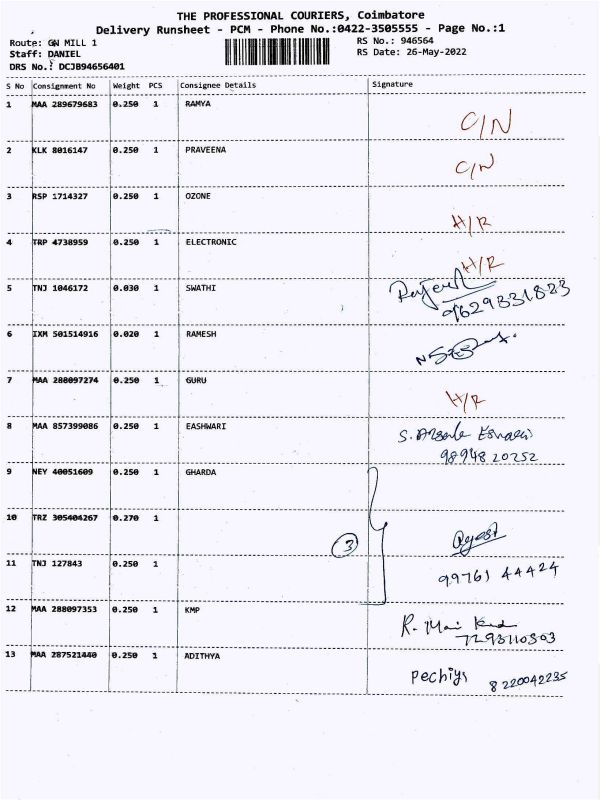 THE PROFESSIONAL COURIERS, Coimbatore
Delivery Runsheet - PCM - Phone No.:0422-3505555 - Page No.:1
Route: GN MILL 1 RS No.: 946564
Staff: DANIEL RS Date: 26-May-2022
DRS No.: DCJB94656401
S No Consignment No Weight PCS Consignee Details Signature
1 MAA 289679683 0.250 1 RAMYA
C/N
2 KLK 8016147 0.250 1 PRAVEENA
C/N
3 RSP 1714327 0.250 1 OZONE
H/R
4 TRP 4738959 0.250 1 ELECTRONIC
H/R
5 TNJ 1046172 0.030 1 SWATHI
9629331823
6 IXM 501514916 0.020 1 RAMESH
7 MAA 288097274 0.250 1 GURU
H/R
8 MAA 857399086 0.250 1 EASHWARI
98948 20252
9 NEY 40051609 0.250 1 GHARDA
10 TRZ 305404267 0.270 1
3
11 TNJ 127843 0.250 1
99761 44424
12 MAA 288097353 0.250 1 KMP
R. Mani
7293110303
13 MAA 287521440 0.250 1 ADITHYA
8220042235